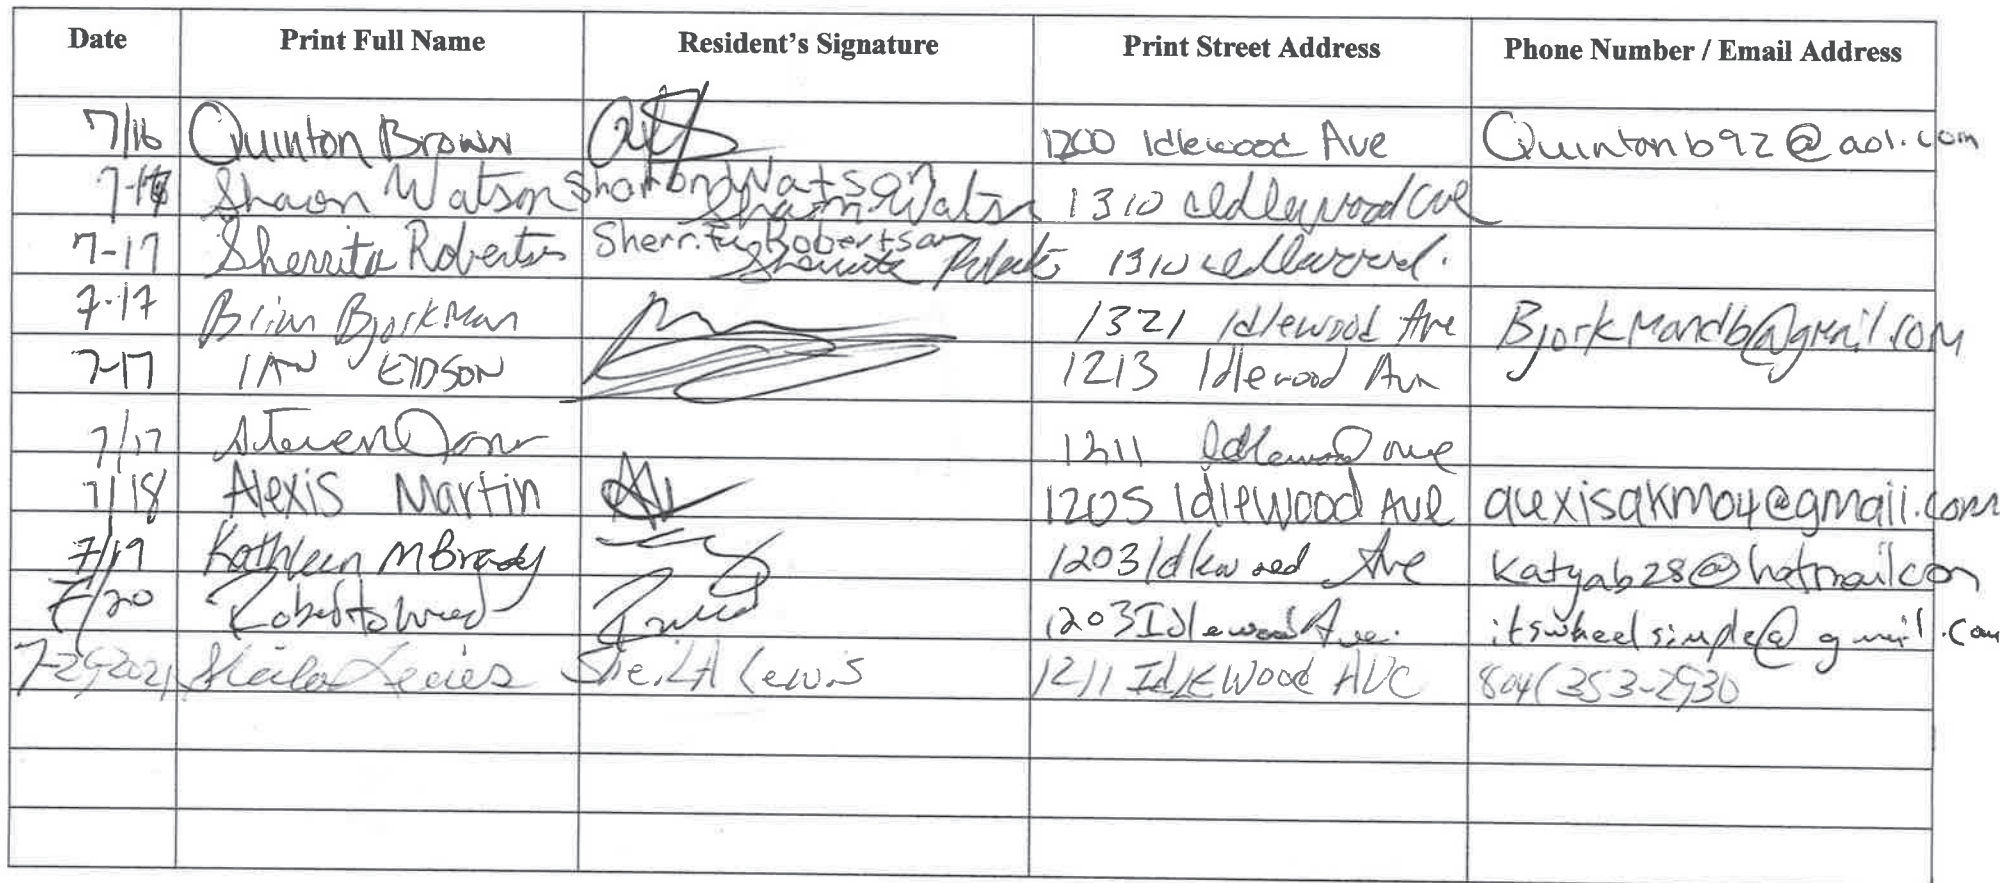 Date Print Full Name Resident's Signature Print Street Address Phone Number / Email Address
7/16 Quinton Brown 1200 Idlewood Ave Quintonb92@aol.com
Shawn Watson Watson 1310 Ave
7-17 Sherrita Robertson Sherrita Robertson 1310
7-17 Brian Bjorkman 1321 Idlewood Ave Bjorkmandb@gmail.com
7-17 IAN EIDSON 1213 Idlewood Ave
7/17 Steven 1211 Idlewood ave
7/18 Alexis Martin 1205 Idlewood Ave alexisakm04@gmail.com
7/19 Kathleen M Brady 1203 Idlewood Ave katyab28@hotmail.com
7/20 1203 Idlewood Ave. itswheelsimple@gmail.com
Sheila Lewis SheilA Lewis 1211 IdlEWood AVE 804(353-2930